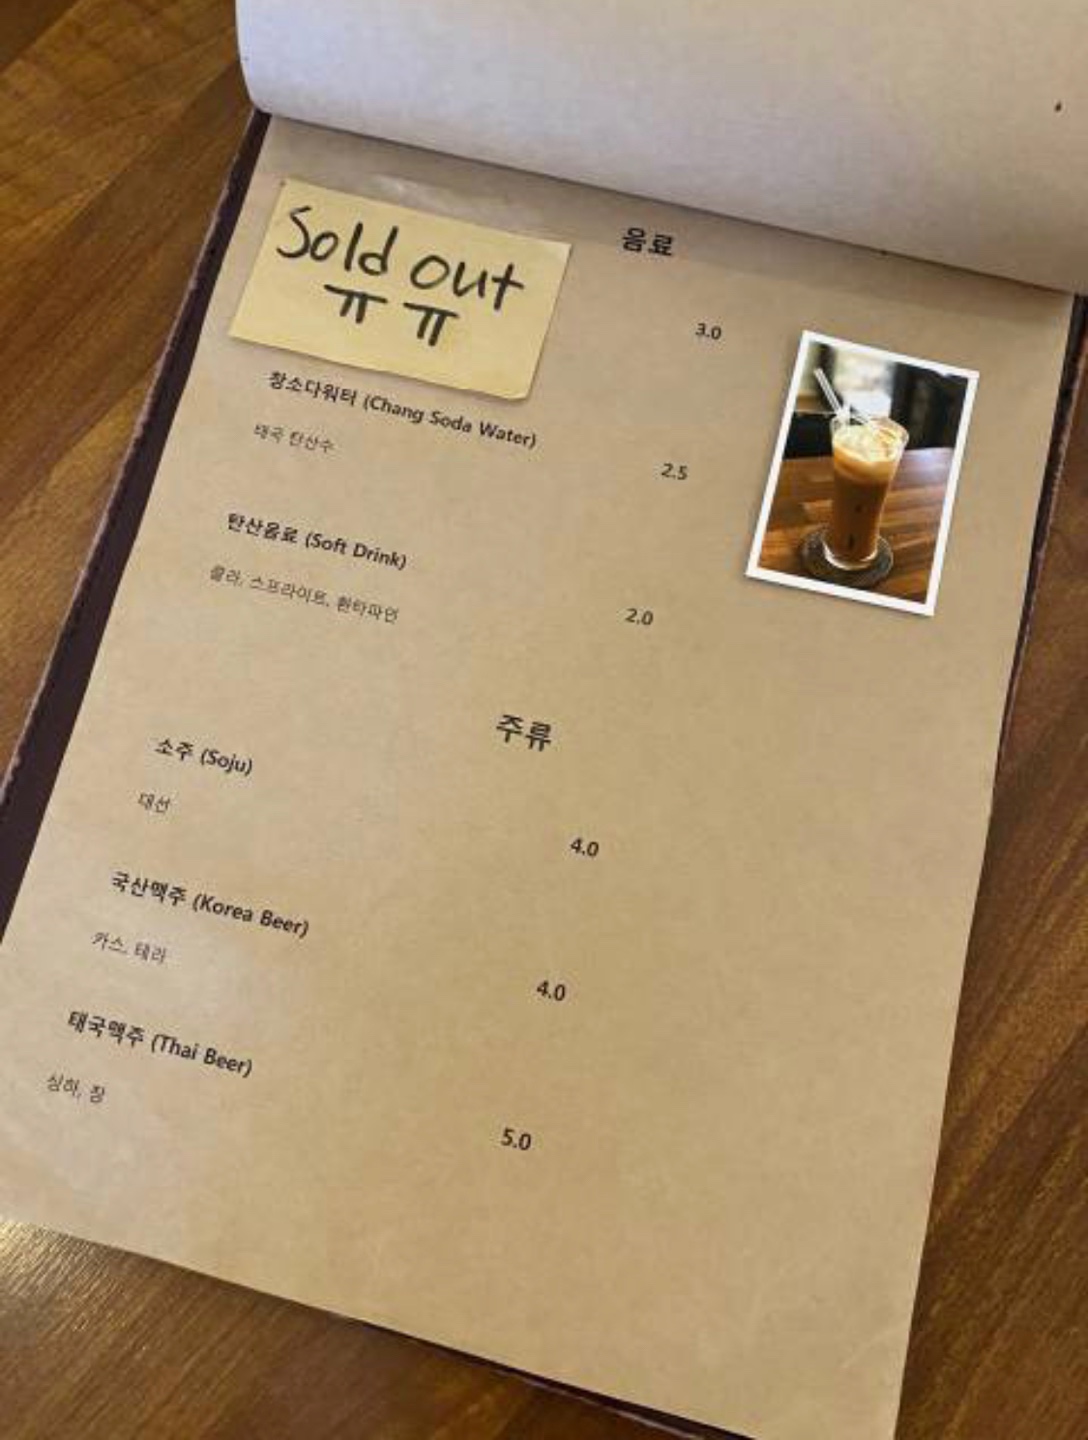 음료
Sold out
ㅠㅠ
3.0
창소다워터 (Chang Soda Water)
태국 탄산수
2.5
탄산음료 (Soft Drink)
콜라, 스프라이트, 환타파인
2.0
주류
소주 (Soju)
대선
4.0
국산맥주 (Korea Beer)
카스, 테라
4.0
태국맥주 (Thai Beer)
싱하, 창
5.0